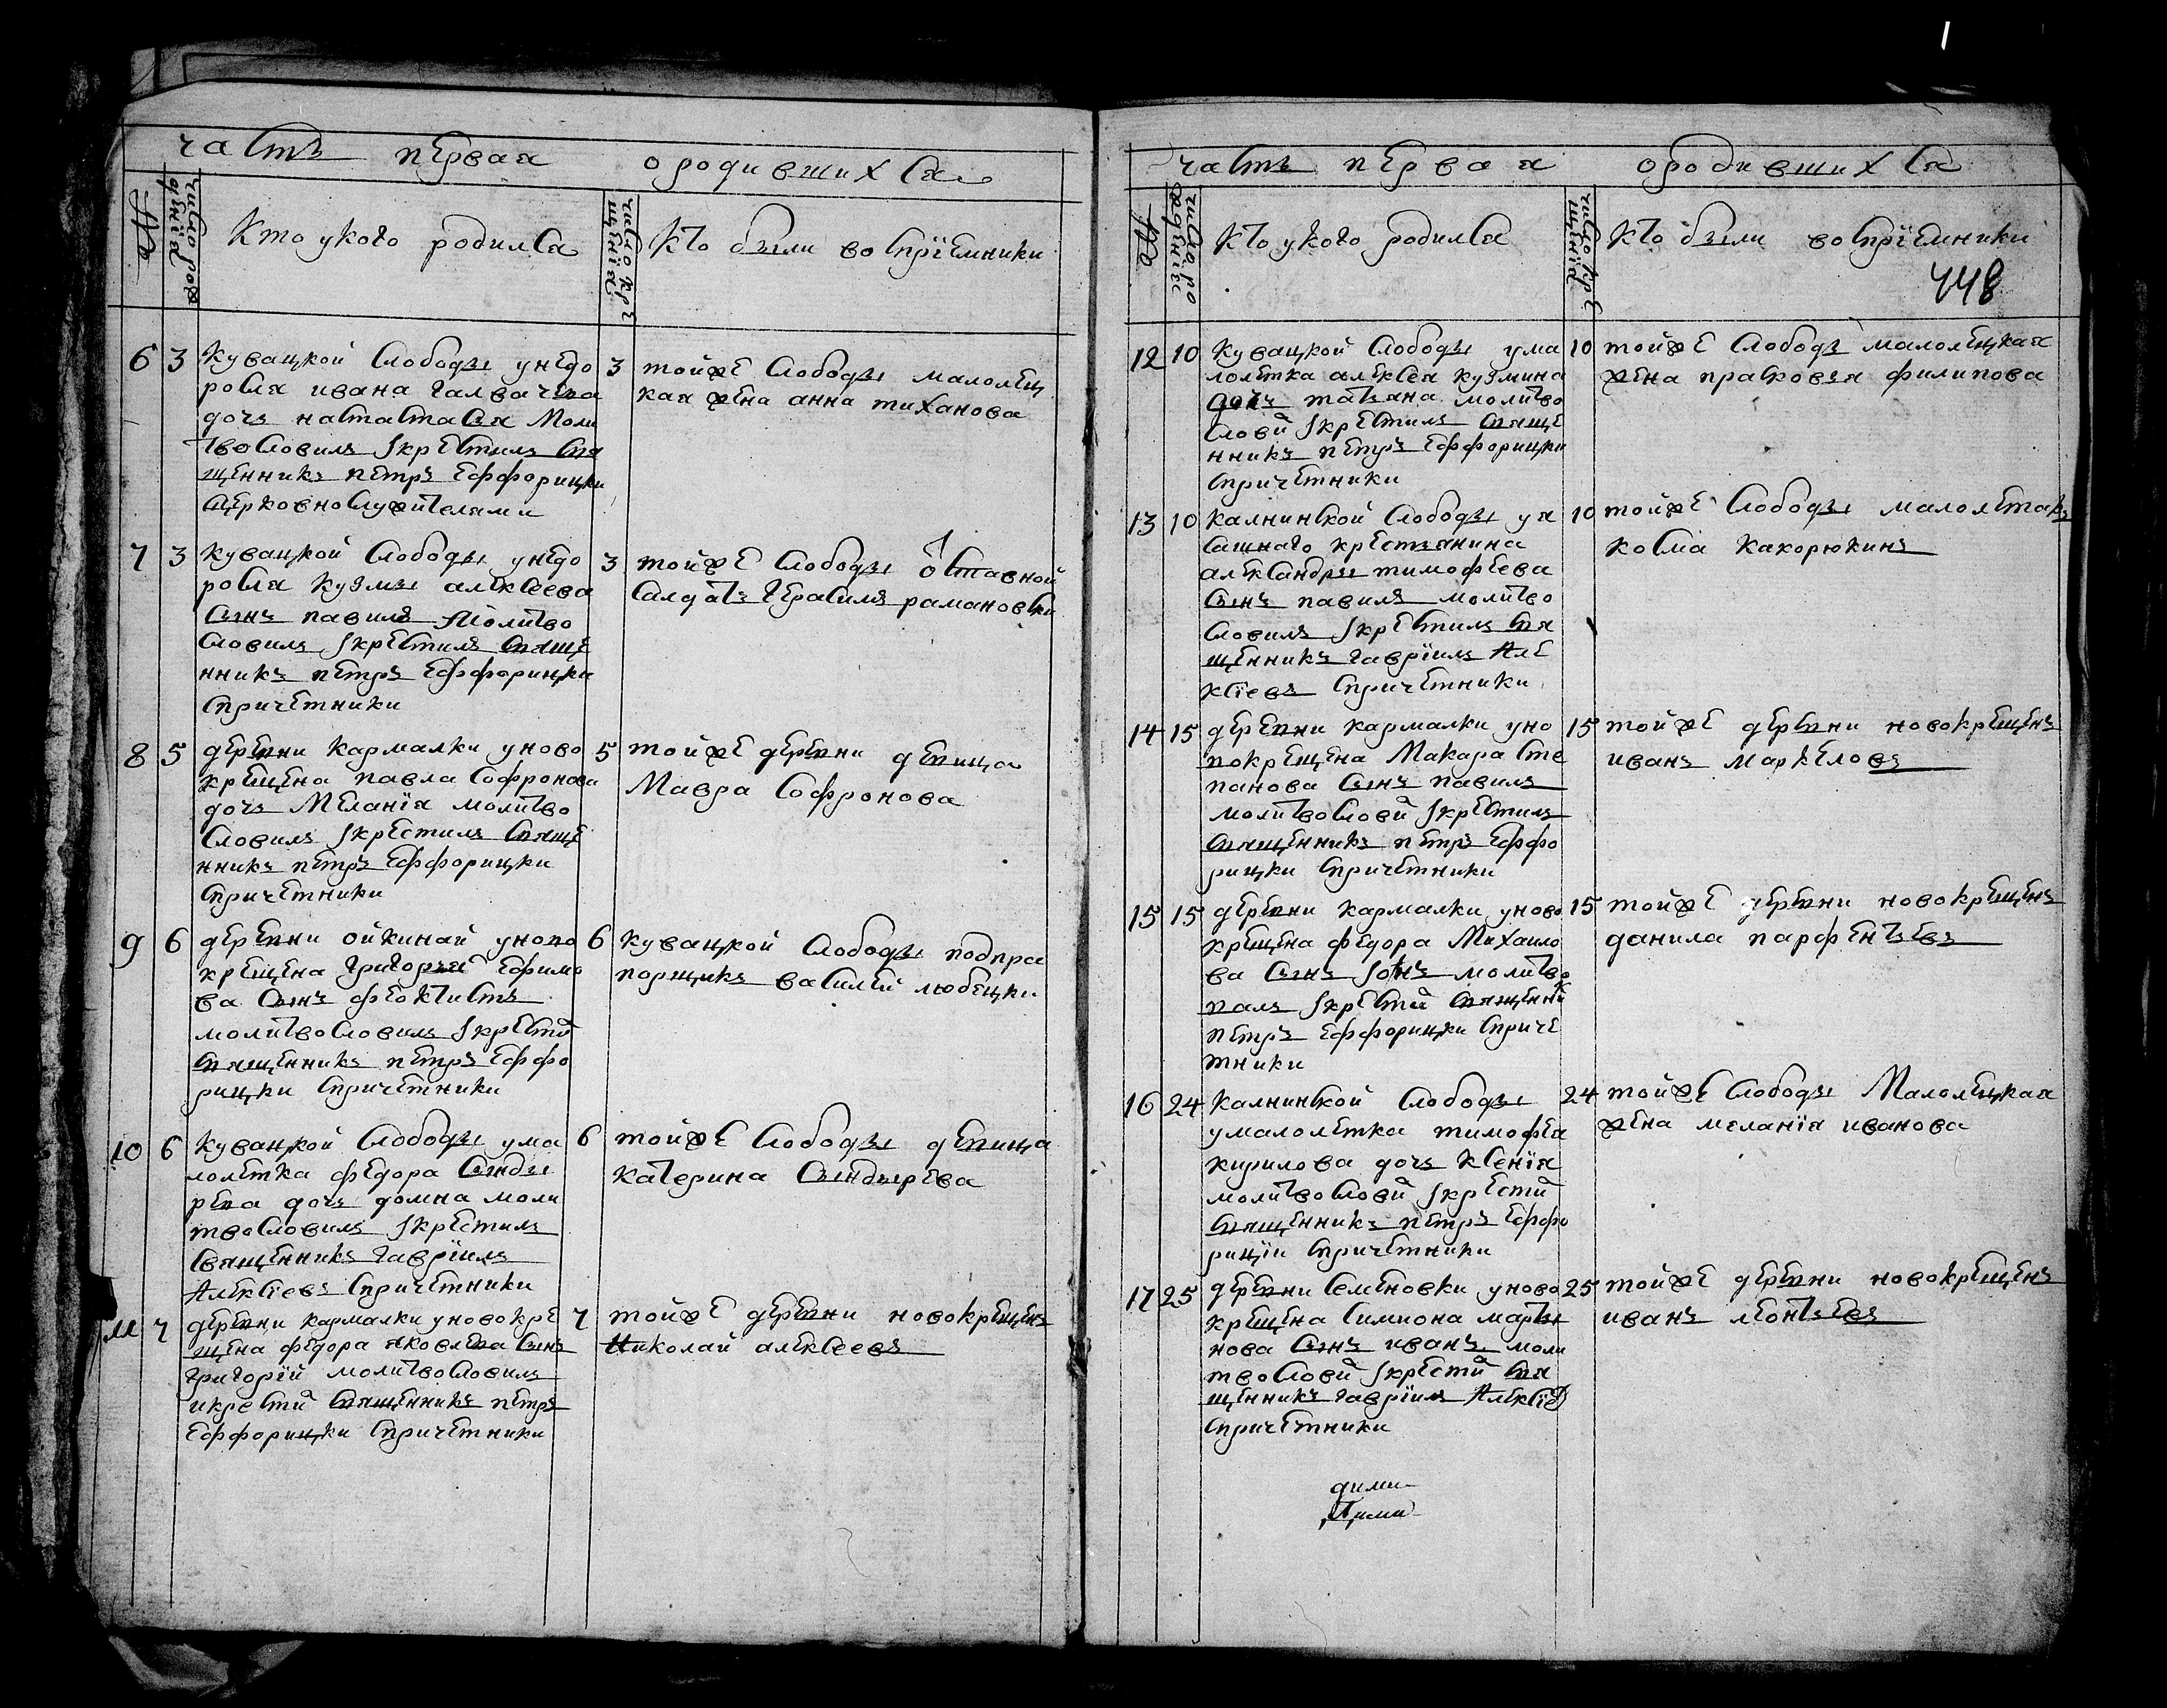 часть первая о родившихся
№
число рождения
Кто у кого родился
число крещения
Кто были восприемники
6 3 Кувацкой Слободы унедо
росля ивана галвачева
дочь настастасея Моли
твословилъ Iкрестилъ свя
щенникъ петръ Еффорицки
сцерковнослужителями
3 тойже Слободы малолец
кая жена анна тиханова
7 3 Кувацкой Слободы унедо
росля Кузмы алексеева
сынъ павилъ Молитво
словилъ Iкрестилъ свяще
нникъ петръ Еффорицки
спричетники
3 тойже Слободы отставной
Салдатъ герасимъ рамановски
8 5 деревни Кармалки уново
крещена павла Софронова
дочь Меланїя молитво
словилъ Iкрестилъ свяще
нникъ петръ Еффорицки
спричетники
5 тойже деревни девица
Мавра Софронова
9 6 деревни ойкинай уново
крещена григорья Ефимо
ва сынъ феоктистъ
молитвословилъ Iкрести
священникъ петръ Еффо
рицки спричетники
6 Кувацкой Слободы подпра
порщикъ василей любецки
10 6 Кувацкой Слободы ума
лолетка федора Сынды
рева дочь домна моли
твословилъ Iкрестилъ
священникъ гаврїилъ
Алексіевъ спричетники
6 тойже Слободы девица
Катерина Сындырева
11 7 деревни Кармалки уновокре
щена федора яковлева сынъ
григорїй молитвословилъ
икрести священникъ петръ
Еффорицки спричетники
7 тойже деревни новокрещенъ
Николай алексеевъ
часть первая о родившихся
№
число рождения
Кто у кого родился
число крещения
Кто были восприемники
448
12 10 Кувацкой Слободы ума
лолетка алексея кузмина
дочь татьяна молитво
слови Iкрестилъ свяще
нникъ петръ Еффорицки
спричетники
10 тойже Слободы малолецкая
жена прасковья филипова
13 10 Калнинской Слободы уя
сашнаго крестьянина
александры тимофеева
сынъ павилъ молитво
словилъ Iкрестилъ свя
щенникъ гаврїилъ Але
ксіевъ спричетники
10 тойже Слободы малолетакъ
Косма Какорюкинъ
14 15 деревни Кармалки уно
вокрещена Макара сте
панова сынъ павилъ
молитвослови Iкрестилъ
священникъ петръ Еффо
рицки спричетники
15 тойже деревни новокрещенъ
иванъ маркеловъ
15 15 деревни Кармалки уново
крещена федора Михаило
ва сынъ молитво
валъ Iкрести священни
петръ Еффорицки сприче
тники
15 тойже деревни новокрещенъ
данила парфентьевъ
16 24 Калнинской Слободы
умалолетка тимофея
Кирилова дочь Ксенїя
молитвослови Iкрести
священникъ петръ Еффо
рицїи спричетники
24 тойже Слободы Малолецкая
жена меланїя иванова
17 25 деревни Семеновки уново
крещена симиона марты
нова сынъ иванъ моли
твослови Iкрести свя
щенникъ гаврїилъ Алексіев
спричетники
25 тойже деревни новокрещенъ
иванъ леонтьевъ